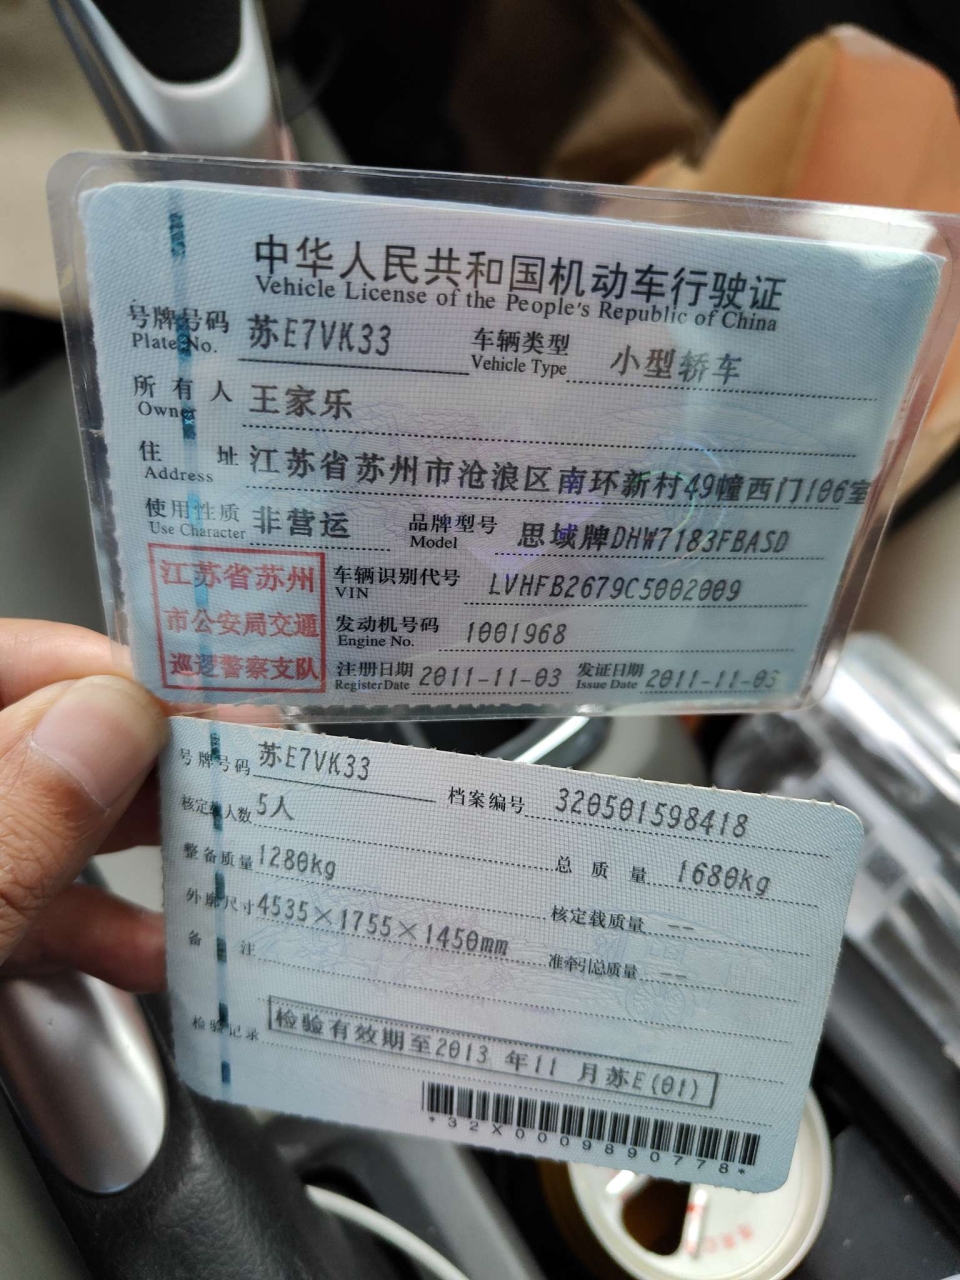 中华人民共和国机动车行驶证
Vehicle License of the People's Republic of China
号牌号码 苏E7VK33 车辆类型 小型轿车
Plate No. Vehicle Type
所有人 王家乐
Owner
住址 江苏省苏州市沧浪区南环新村49幢西门106室
Address
使用性质 非营运 品牌型号 思域牌DHW7183FBASD
Use Character Model
江苏省苏州
市公安局交通
巡逻警察支队
车辆识别代号 LVHFB2679C5002009
VIN
发动机号码 1001968
Engine No.
注册日期 2011-11-03 发证日期 2011-11-03
Register Date Issue Date
号牌号码 苏E7VK33 档案编号 320501598418
核定载人数 5人 总质量 1680kg
整备质量 1280kg 核定载质量 --
外廓尺寸 4535×1755×1450mm 准牵引总质量 --
备注
检验记录 检验有效期至2013 年11 月苏E(01)
*32X0009890778*